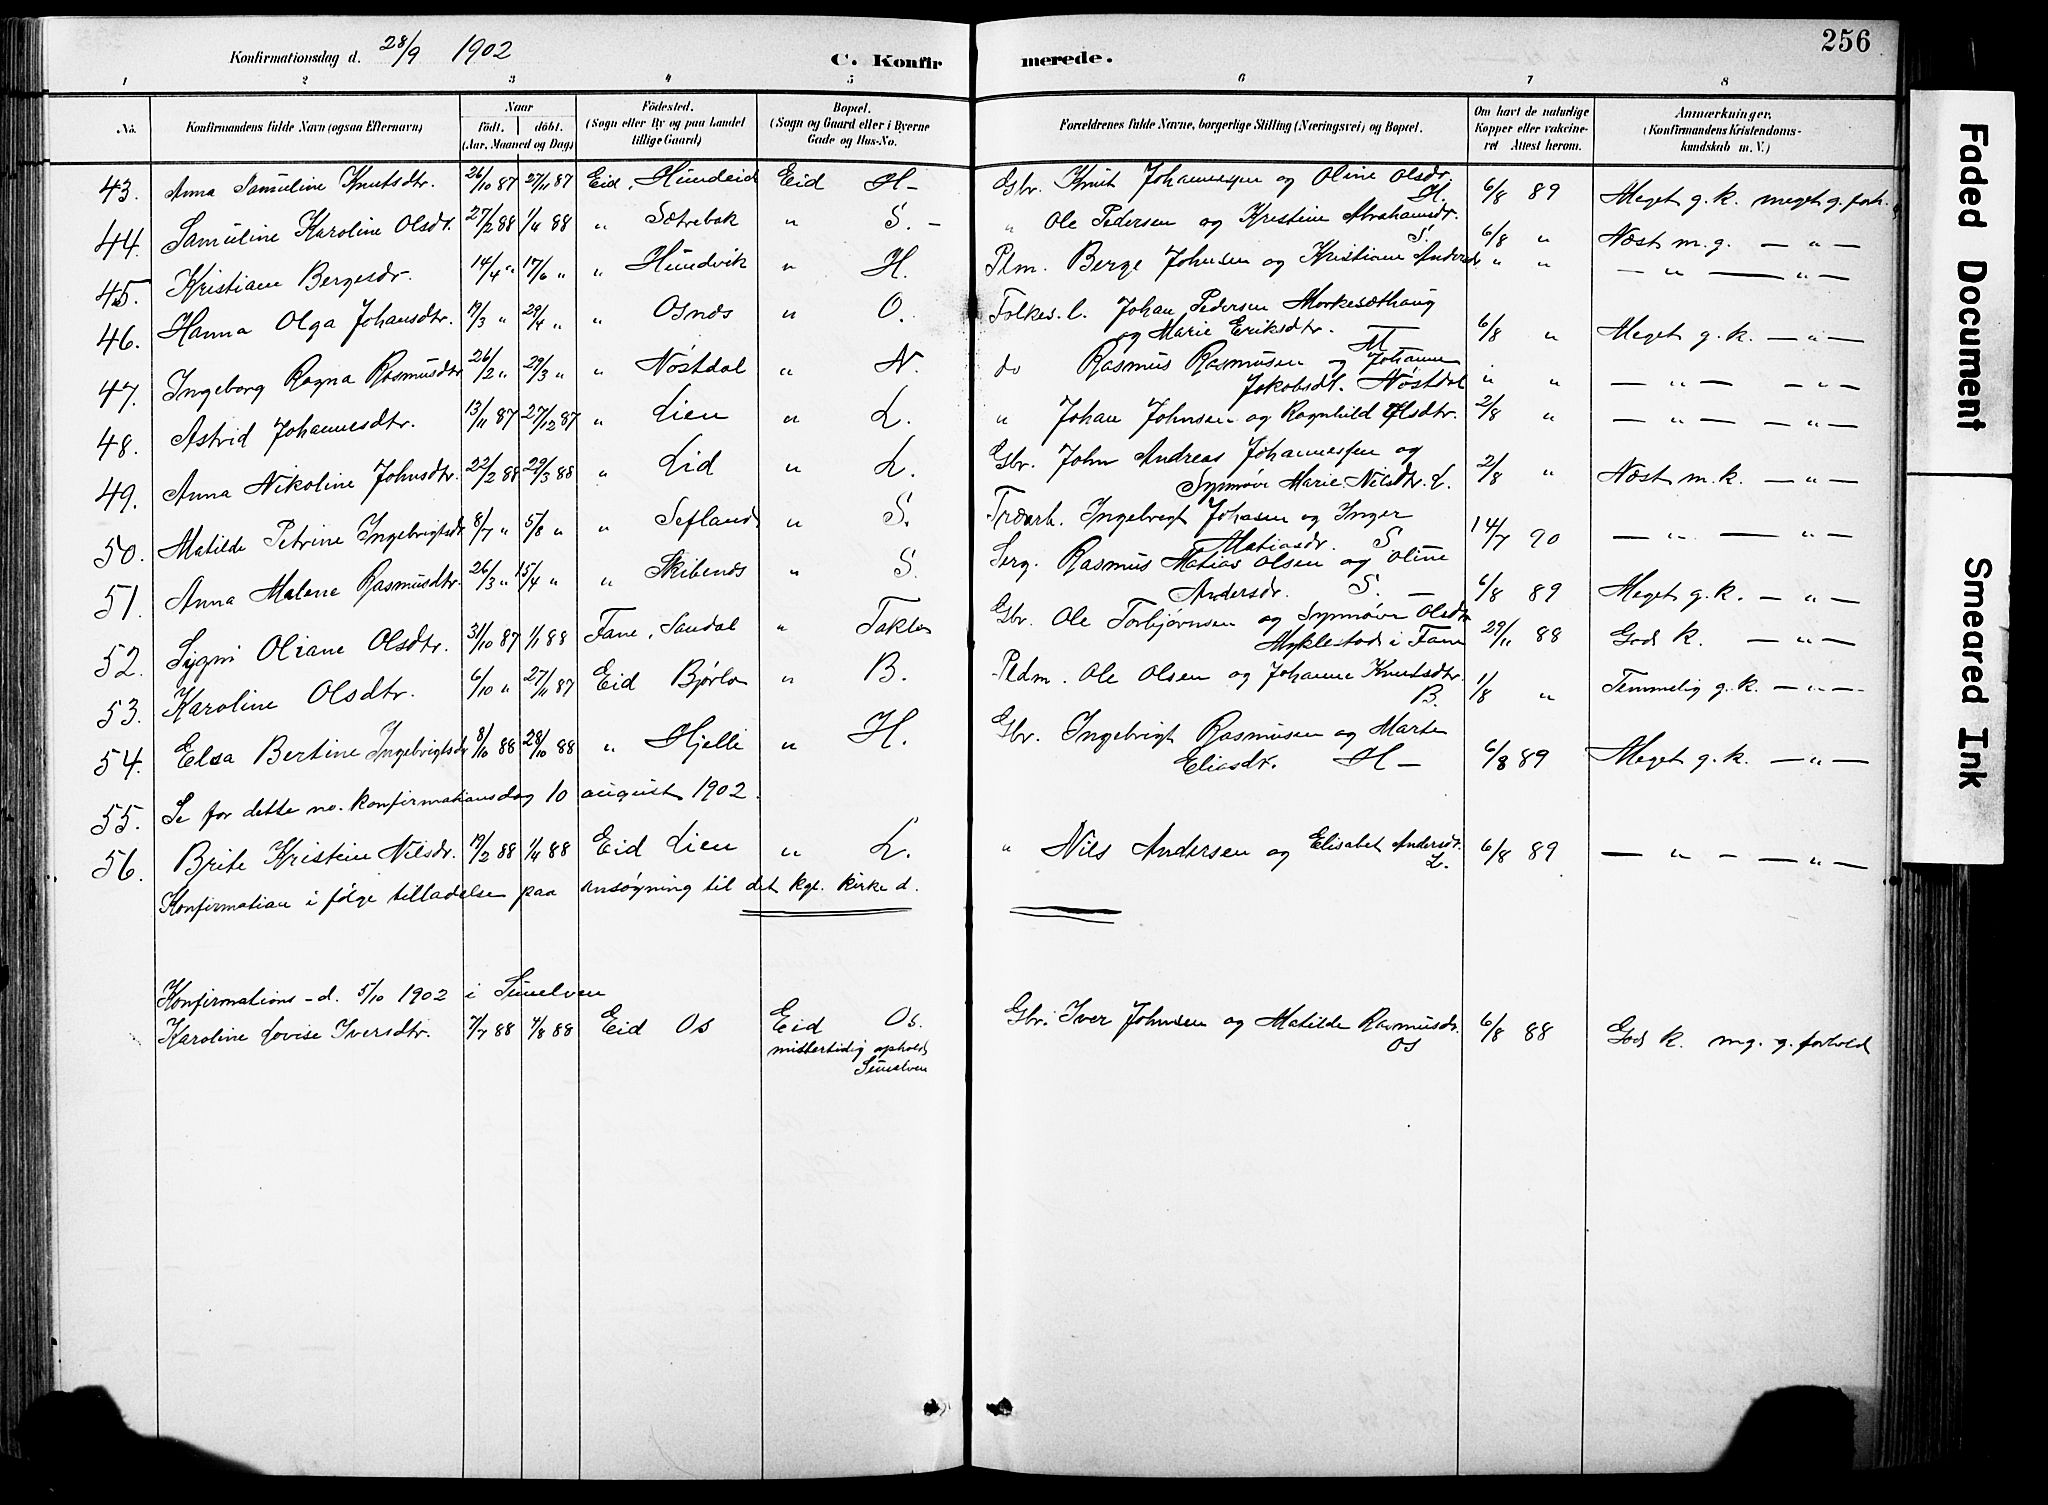 256
Konfirmationsdag d. 28/9 1902 C. Konfirmerede.
1 2 3 4 5 6 7 8
No. Konfirmandens fulde Navn (ogsaa Efternavn) Naar födt. döbt. (Aar, Maaned og Dag) Födested. (Sogn eller By og paa Landet tillige Gaard) Bopæl. (Sogn og Gaard eller i Byerne Gade og Hus-No. Forældrenes fulde Navne, borgerlige Stilling (Næringsvei) og Bopæl. Om havt de naturlige Kopper eller vakcineret Attest herom. Anmærkninger, (Konfirmandens Kristendomskundskab m. V.)
43. Anna Samuline Knutsdtr. 26/10 87 27/11 87 Eid, Hundeid Eid H- Gbr. Knut Johannessen og Oline Olsdr. H. 6/8 89 Meget g. k. meget g. forh.
44. Samuline Karoline Olsdr. 27/2 88 1/4 88 " Sætrebak " S. - " Ole Pedersen og Kristine Abrahamsdr. S. 6/8 " Næst m. g. — " —
45. Kristiane Bergesdr. 14/4 " 17/6 " " Hundvik " H. Plm. Berge Johnsen og Kristiane Andersdr " " — " — — " —
46. Hanna Olga Johansdtr. 19/3 " 29/4 " " Osnes " O. Folkes. l. Johan Pedersen Morkesæthaug
og Marie Eriksdtr. M 6/8 " Meget g. k. — " —
47. Ingeborg Ragna Rasmusdtr 26/2 " 29/3 " " Nøstdal " N. do Rasmus Rasmusen og Johanne
Jakobsdt. Nøstdal " " — " — — " —
48. Astrid Johannesdtr. 13/11 87 27/12 87 " Lien " L. " Johan Johnsen og Ragnhild Olsdtr. 2/8 " — " — — " —
49. Anna Nikoline Johnsdtr. 22/2 88 29/3 88 " Lid " L. Gbr. John Andreas Johannessen og
Synnøve Marie Nilsdtr. L. 2/8 " Næst m. k. — " —
50. Matilde Petrine Ingebrigtsdr 8/7 " 5/8 " " Sefland " S. Træarb. Ingebrigt Johasen og Inger
Matiasdr. S 14/7 90 — " — — " —
51. Anna Malene Rasmusdtr. 26/3 " 15/4 " " Skibenes " S. Serg. Rasmus Matias Olsen og Oline
Andersdr. S. — 6/8 89 Meget g. k. — " —
52. Sygni Oliane Olsdtr. 31/10 87 1/1 88 Fane, Sandal " Takle Gbr. Ole Torbjørnsen og Synnøve Olsdtr
Myklestad i Fane 29/11 88 God k. — " —
53. Karoline Olsdtr. 6/10 " 27/11 87 Eid Bjørlo " B. Pedm. Ole Olsen og Johanne Knutsdtr
B. 1/8 " Temmelig g. k. — " —
54. Elsa Bertine Ingebrigtsdr 8/10 88 28/10 88 " Hjelle " H. Gbr. Ingebrigt Rasmusen og Marte
Eliasdr. H — 6/8 89 Meget g. k. — " —
55. Se for dette no. konfirmationsdag 10 august 1902.
56. Brite Kristine Nilsdr. 19/2 88 1/4 88 Eid Lien " L. " Nils Andersen og Elisabet Andersdr.
L. 6/8 89 — " — — " —
Konfirmation i følge tilladelse paa ansøgning til det kgl. kirke d.
Konfirmations-d. 5/10 1902 i Sunelven
Karoline Lovise Iversdtr. 7/7 88 4/8 88 Eid Os Eid Os. Gbr. Iver Johnsen og Matilde Rasmusdr. 6/8 88 God k. mg. g. forhold
midlertidig ophold Os
Sunelven
Faded Document
Smeared Ink